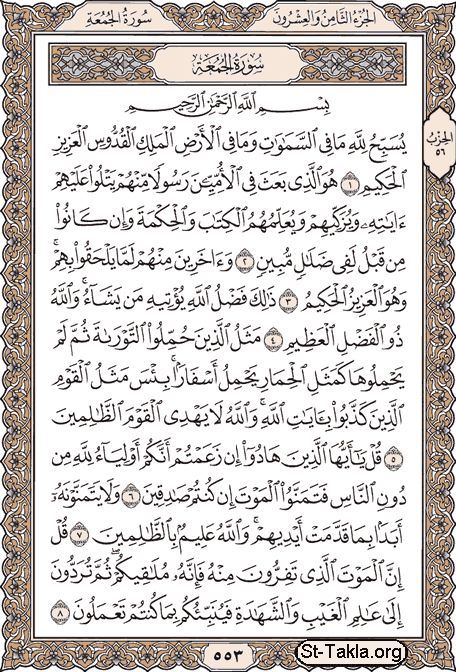 الجزء الثامن والعشرون
سورة الجمعة
سُورَةُ الجُمُعَةِ
الحزب
٥٦
بِسْمِ ٱللَّهِ ٱلرَّحْمَٰنِ ٱلرَّحِيمِ
يُسَبِّحُ لِلَّهِ مَا فِي ٱلسَّمَٰوَٰتِ وَمَا فِي ٱلْأَرْضِ ٱلْمَلِكِ ٱلْقُدُّوسِ ٱلْعَزِيزِ
ٱلْحَكِيمِ ١ هُوَ ٱلَّذِي بَعَثَ فِي ٱلْأُمِّيِّـۧنَ رَسُولًا مِّنْهُمْ يَتْلُوا۟ عَلَيْهِمْ
ءَايَٰتِهِۦ وَيُزَكِّيهِمْ وَيُعَلِّمُهُمُ ٱلْكِتَٰبَ وَٱلْحِكْمَةَ وَإِن كَانُوا۟
مِن قَبْلُ لَفِي ضَلَٰلٍ مُّبِينٍ ٢ وَءَاخَرِينَ مِنْهُمْ لَمَّا يَلْحَقُوا۟ بِهِمْ ۚ
وَهُوَ ٱلْعَزِيزُ ٱلْحَكِيمُ ٣ ذَٰلِكَ فَضْلُ ٱللَّهِ يُؤْتِيهِ مَن يَشَآءُ ۚ وَٱللَّهُ
ذُو ٱلْفَضْلِ ٱلْعَظِيمِ ٤ مَثَلُ ٱلَّذِينَ حُمِّلُوا۟ ٱلتَّوْرَىٰةَ ثُمَّ لَمْ
يَحْمِلُوهَا كَمَثَلِ ٱلْحِمَارِ يَحْمِلُ أَسْفَارًۢا ۚ بِئْسَ مَثَلُ ٱلْقَوْمِ
ٱلَّذِينَ كَذَّبُوا۟ بِـَٔايَٰتِ ٱللَّهِ ۚ وَٱللَّهُ لَا يَهْدِي ٱلْقَوْمَ ٱلظَّٰلِمِينَ
٥ قُلْ يَٰٓأَيُّهَا ٱلَّذِينَ هَادُوٓا۟ إِن زَعَمْتُمْ أَنَّكُمْ أَوْلِيَآءُ لِلَّهِ مِن
دُونِ ٱلنَّاسِ فَتَمَنَّوُا۟ ٱلْمَوْتَ إِن كُنتُمْ صَٰدِقِينَ ٦ وَلَا يَتَمَنَّوْنَهُۥٓ
أَبَدًۢا بِمَا قَدَّمَتْ أَيْدِيهِمْ ۚ وَٱللَّهُ عَلِيمٌۢ بِٱلظَّٰلِمِينَ ٧ قُلْ
إِنَّ ٱلْمَوْتَ ٱلَّذِي تَفِرُّونَ مِنْهُ فَإِنَّهُۥ مُلَٰقِيكُمْ ۖ ثُمَّ تُرَدُّونَ
إِلَىٰ عَٰلِمِ ٱلْغَيْبِ وَٱلشَّهَٰدَةِ فَيُنَبِّئُكُم بِمَا كُنتُمْ تَعْمَلُونَ ٨
٥٥٣
St-Takla.org